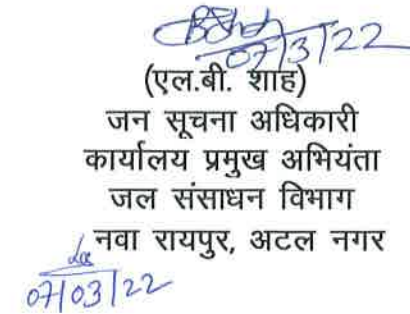 07/3/22
(एल.बी. शाह)
जन सूचना अधिकारी
कार्यालय प्रमुख अभियंता
जल संसाधन विभाग
नवा रायपुर, अटल नगर
07/03/22